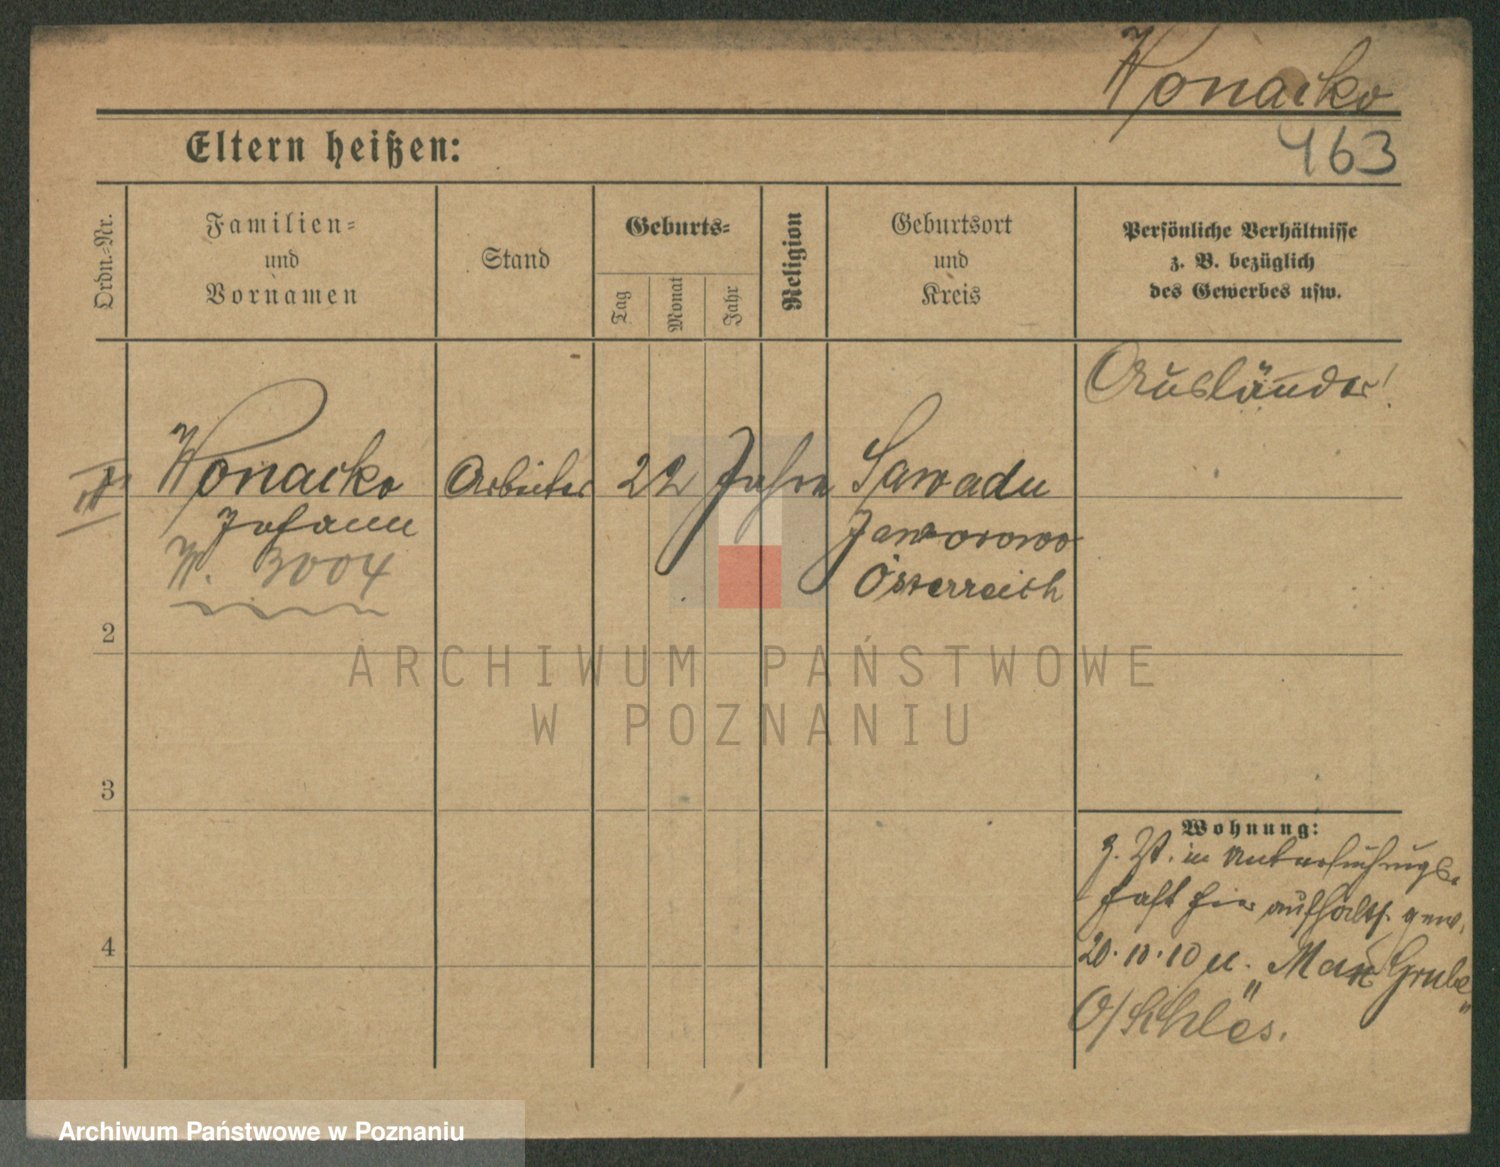 Wonacko
463
Eltern heißen:
Ordn.-Nr.
Familien-
und
Vornamen
Stand
Geburts-
Tag
Monat
Jahr
Religion
Geburtsort
und
Kreis
Persönliche Verhältnisse
z. B. bezüglich
des Gewerbes usw.
Ausländer!
Wonacko Arbeiter 22 Jahre Sawadu
Johann Jaworowo
W. 3004 Österreich
2
3
4
Wohnung:
z. Zt. in Untersuchungs-
haft hier aufhälts. gew.
20.10.10 n. "Max Grube"
O/Schles.
ARCHIWUM PAŃSTWOWE
W POZNANIU
Archiwum Państwowe w Poznaniu